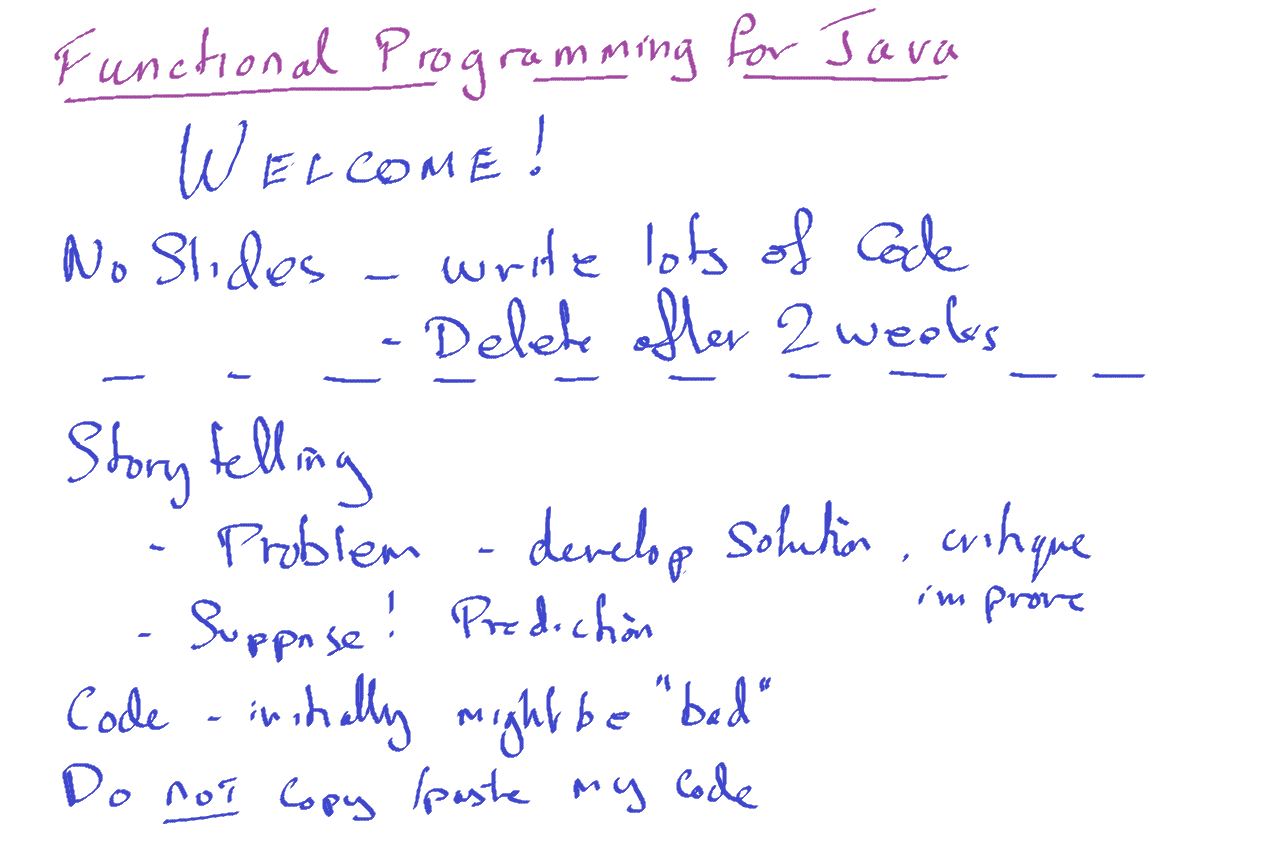 Functional Programming for Java
WELCOME!
No Slides - write lots of Code
- Delete after 2 weeks
Story telling
- Problem - develop solution, critique
improve
- Suppose! Prediction
Code - initially might be "bad"
Do not copy/paste my code